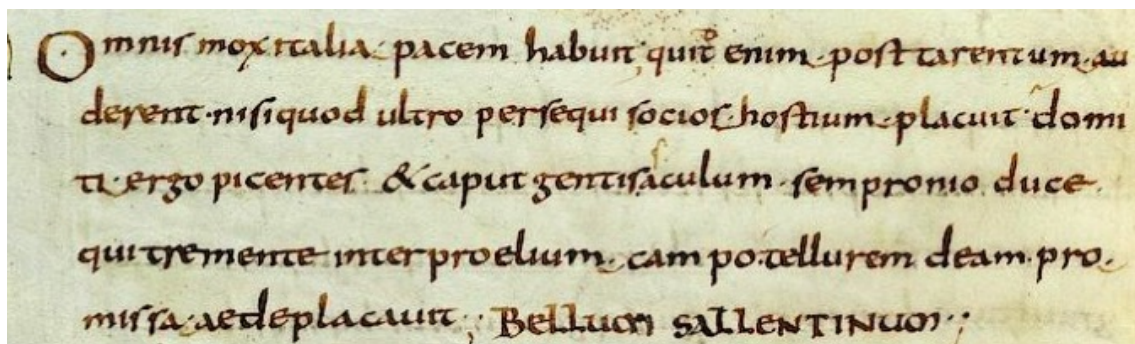 Omnis mox italia · pacem habuit quit enim · post tarentum · au
derent · nisi quod ultro persequi socios · hostium · placuit · domi
ti · ergo picentes · & caput gentis aculum · sempronio duce ·
qui tremente inter proelium · campo · tellurem deam · pro ·
missa · aede placauit · Bellum SALLENTINUM ·